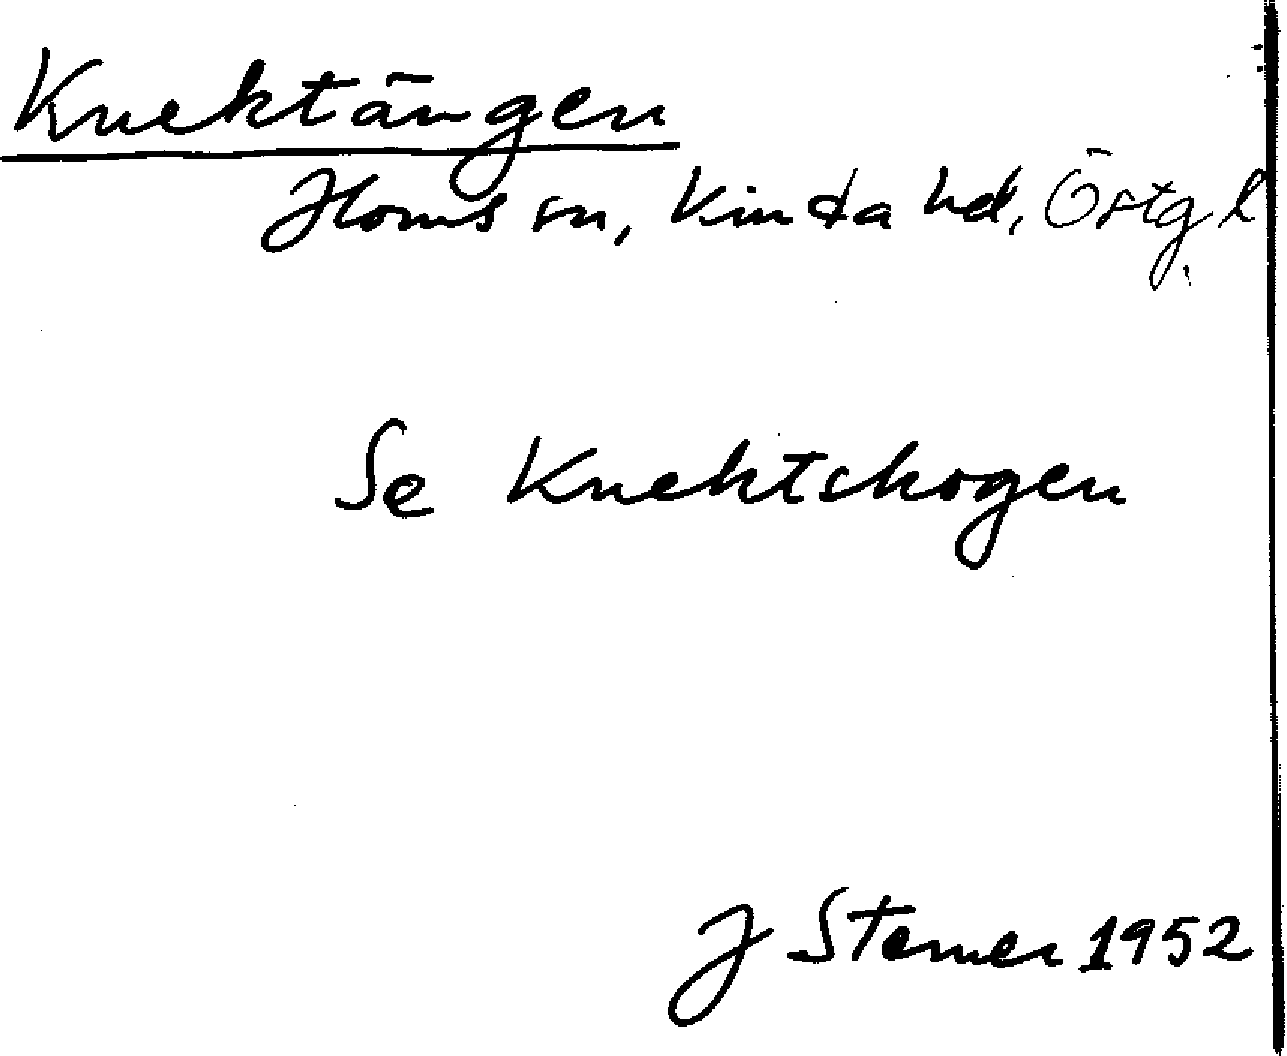 Knektängen
Horns sn, Kinda hd, Östgl
Se Knektskogen
J Sterner 1952